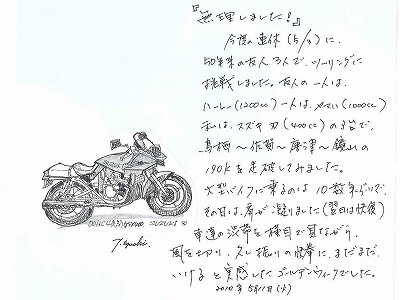 『無理しました！』
今度の連休(5/3)に、
50年来の友人3人で、ツーリングに
挑戦しました。友人の一人は、
ハーレー(1200cc)一人は、(1000cc)
私は、スズキ刀(400cc)の3台で、
鳥栖〜佐賀〜唐津〜鏡山の
190Kを走破してみました。
大型バイクに乗るのは10数年ぶりで、
その日は、肩が凝りました(翌日は快復)
車道の渋滞を横目で見ながら
風を切り、久し振りの快挙に、まだまだ
いけると実感したゴールデンウィークでした。
2010年5月11日(火)
SUZUKI
T.Eguchi